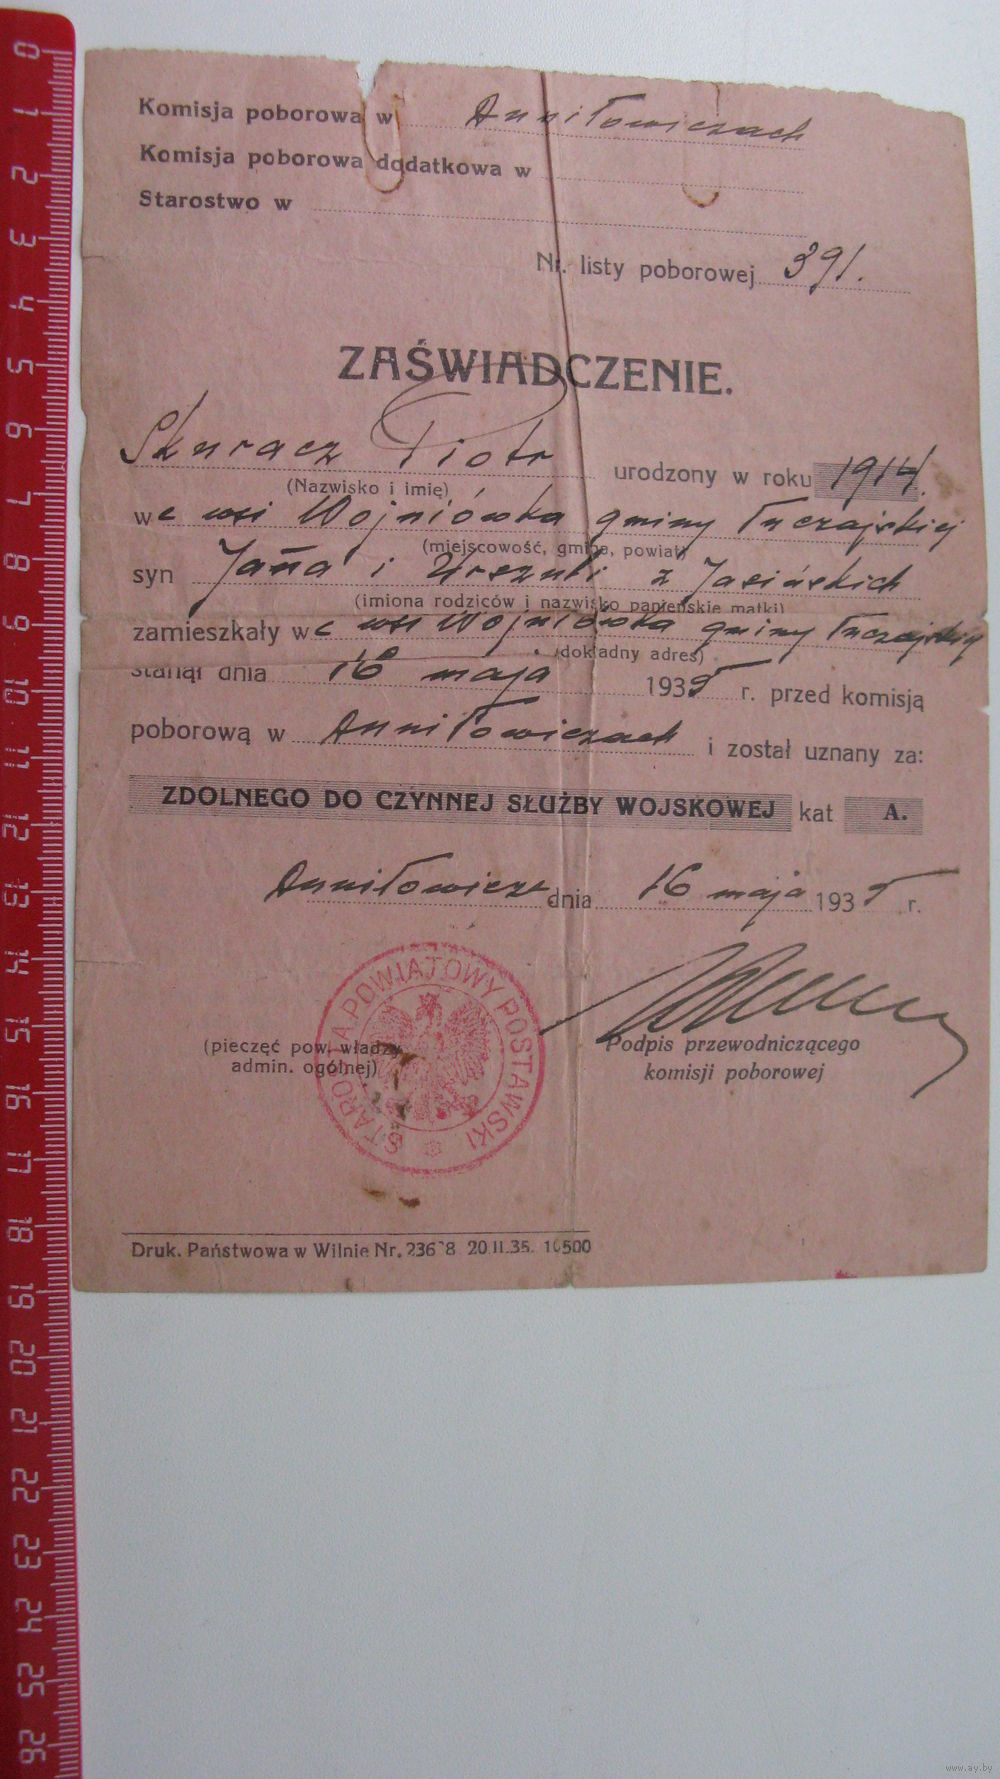 Komisja poborowa w Duniłowiczach
Komisja poborowa dodatkowa w
Starostwo w
Nr. listy poborowej 391.
ZAŚWIADCZENIE.
Skuracz Piotr urodzony w roku 1914
(Nazwisko i imię)
we wsi Wojniówka gminy Łuczajskiej
(miejscowość, gmina, powiat)
syn Jana i Urszuli z Jasińskich
(imiona rodziców i nazwisko panieńskie matki)
zamieszkały we wsi Wojniówka gminy Łuczajskiej
(dokładny adres)
stanął dnia 16 maja 1935 r. przed komisją
poborową w Duniłowiczach i został uznany za:
ZDOLNEGO DO CZYNNEJ SŁUŻBY WOJSKOWEJ kat A.
Duniłowicze dnia 16 maja 1935 r.
STAROSTA POWIATOWY POSTAWSKI
(pieczęć pow. władzy
admin. ogólnej)
Podpis przewodniczącego
komisji poborowej
Druk. Państwowa w Wilnie Nr. 236 8 20.II.35. 10500
0 1 2 3 4 5 6 7 8 9 10 11 12 13 14 15 16 17 18 19 20 21 22 23 24 25 26
www.ay.by